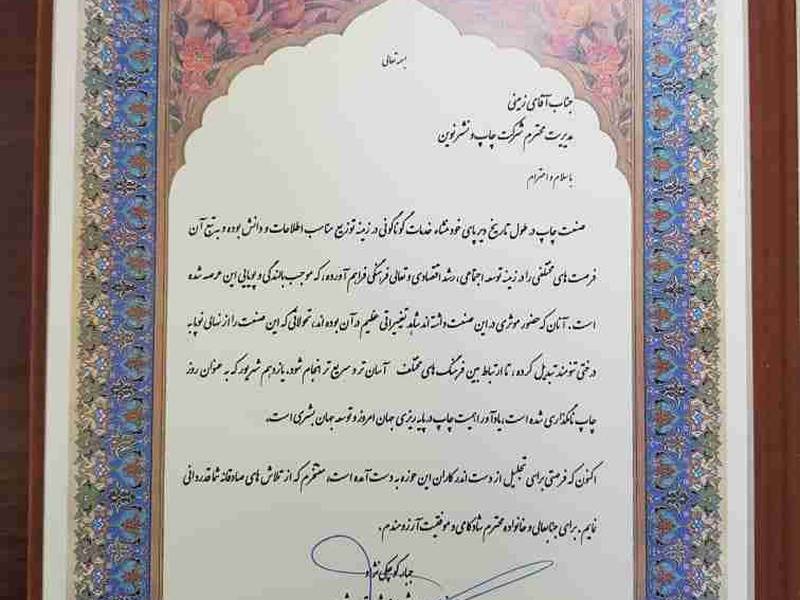 بسمه تعالی
جناب آقای زمینی
مدیریت محترم شرکت چاپ و نشر نوین
باسلام و احترام
صنعت چاپ در طول تاریخ دیرپای خود منشاء خدمات گوناگونی در زمینه توزیع مناسب اطلاعات و دانش بوده و به تبع آن
فرصت های مختلفی را در زمینه توسعه اجتماعی، رشد اقتصادی و تعالی فرهنگی فراهم آورده، که موجب بالندگی و پویایی این عرصه شده
است. آنان که حضور موثری در این صنعت داشته اند شاهد تغییراتی عظیم در آن بوده اند، تحولاتی که این صنعت را از نهالی نوپا به
درختی تنومند تبدیل کرده، تا ارتباط بین فرهنگ های مختلف آسان تر و سریع تر انجام شود. یازدهم شهریور که به عنوان روز
چاپ نامگذاری شده است، یادآور اهمیت چاپ در پایه ریزی جهان امروز و توسعه جهان بشری است.
اکنون که فرصتی برای تجلیل از دست اندرکاران این حوزه به دست آمده است، مفتخرم که از تلاش های صادقانه شما قدردانی
نمایم. برای جنابعالی و خانواده محترم شادکامی و موفقیت آرزومندم.
جبار کوچکی نژاد